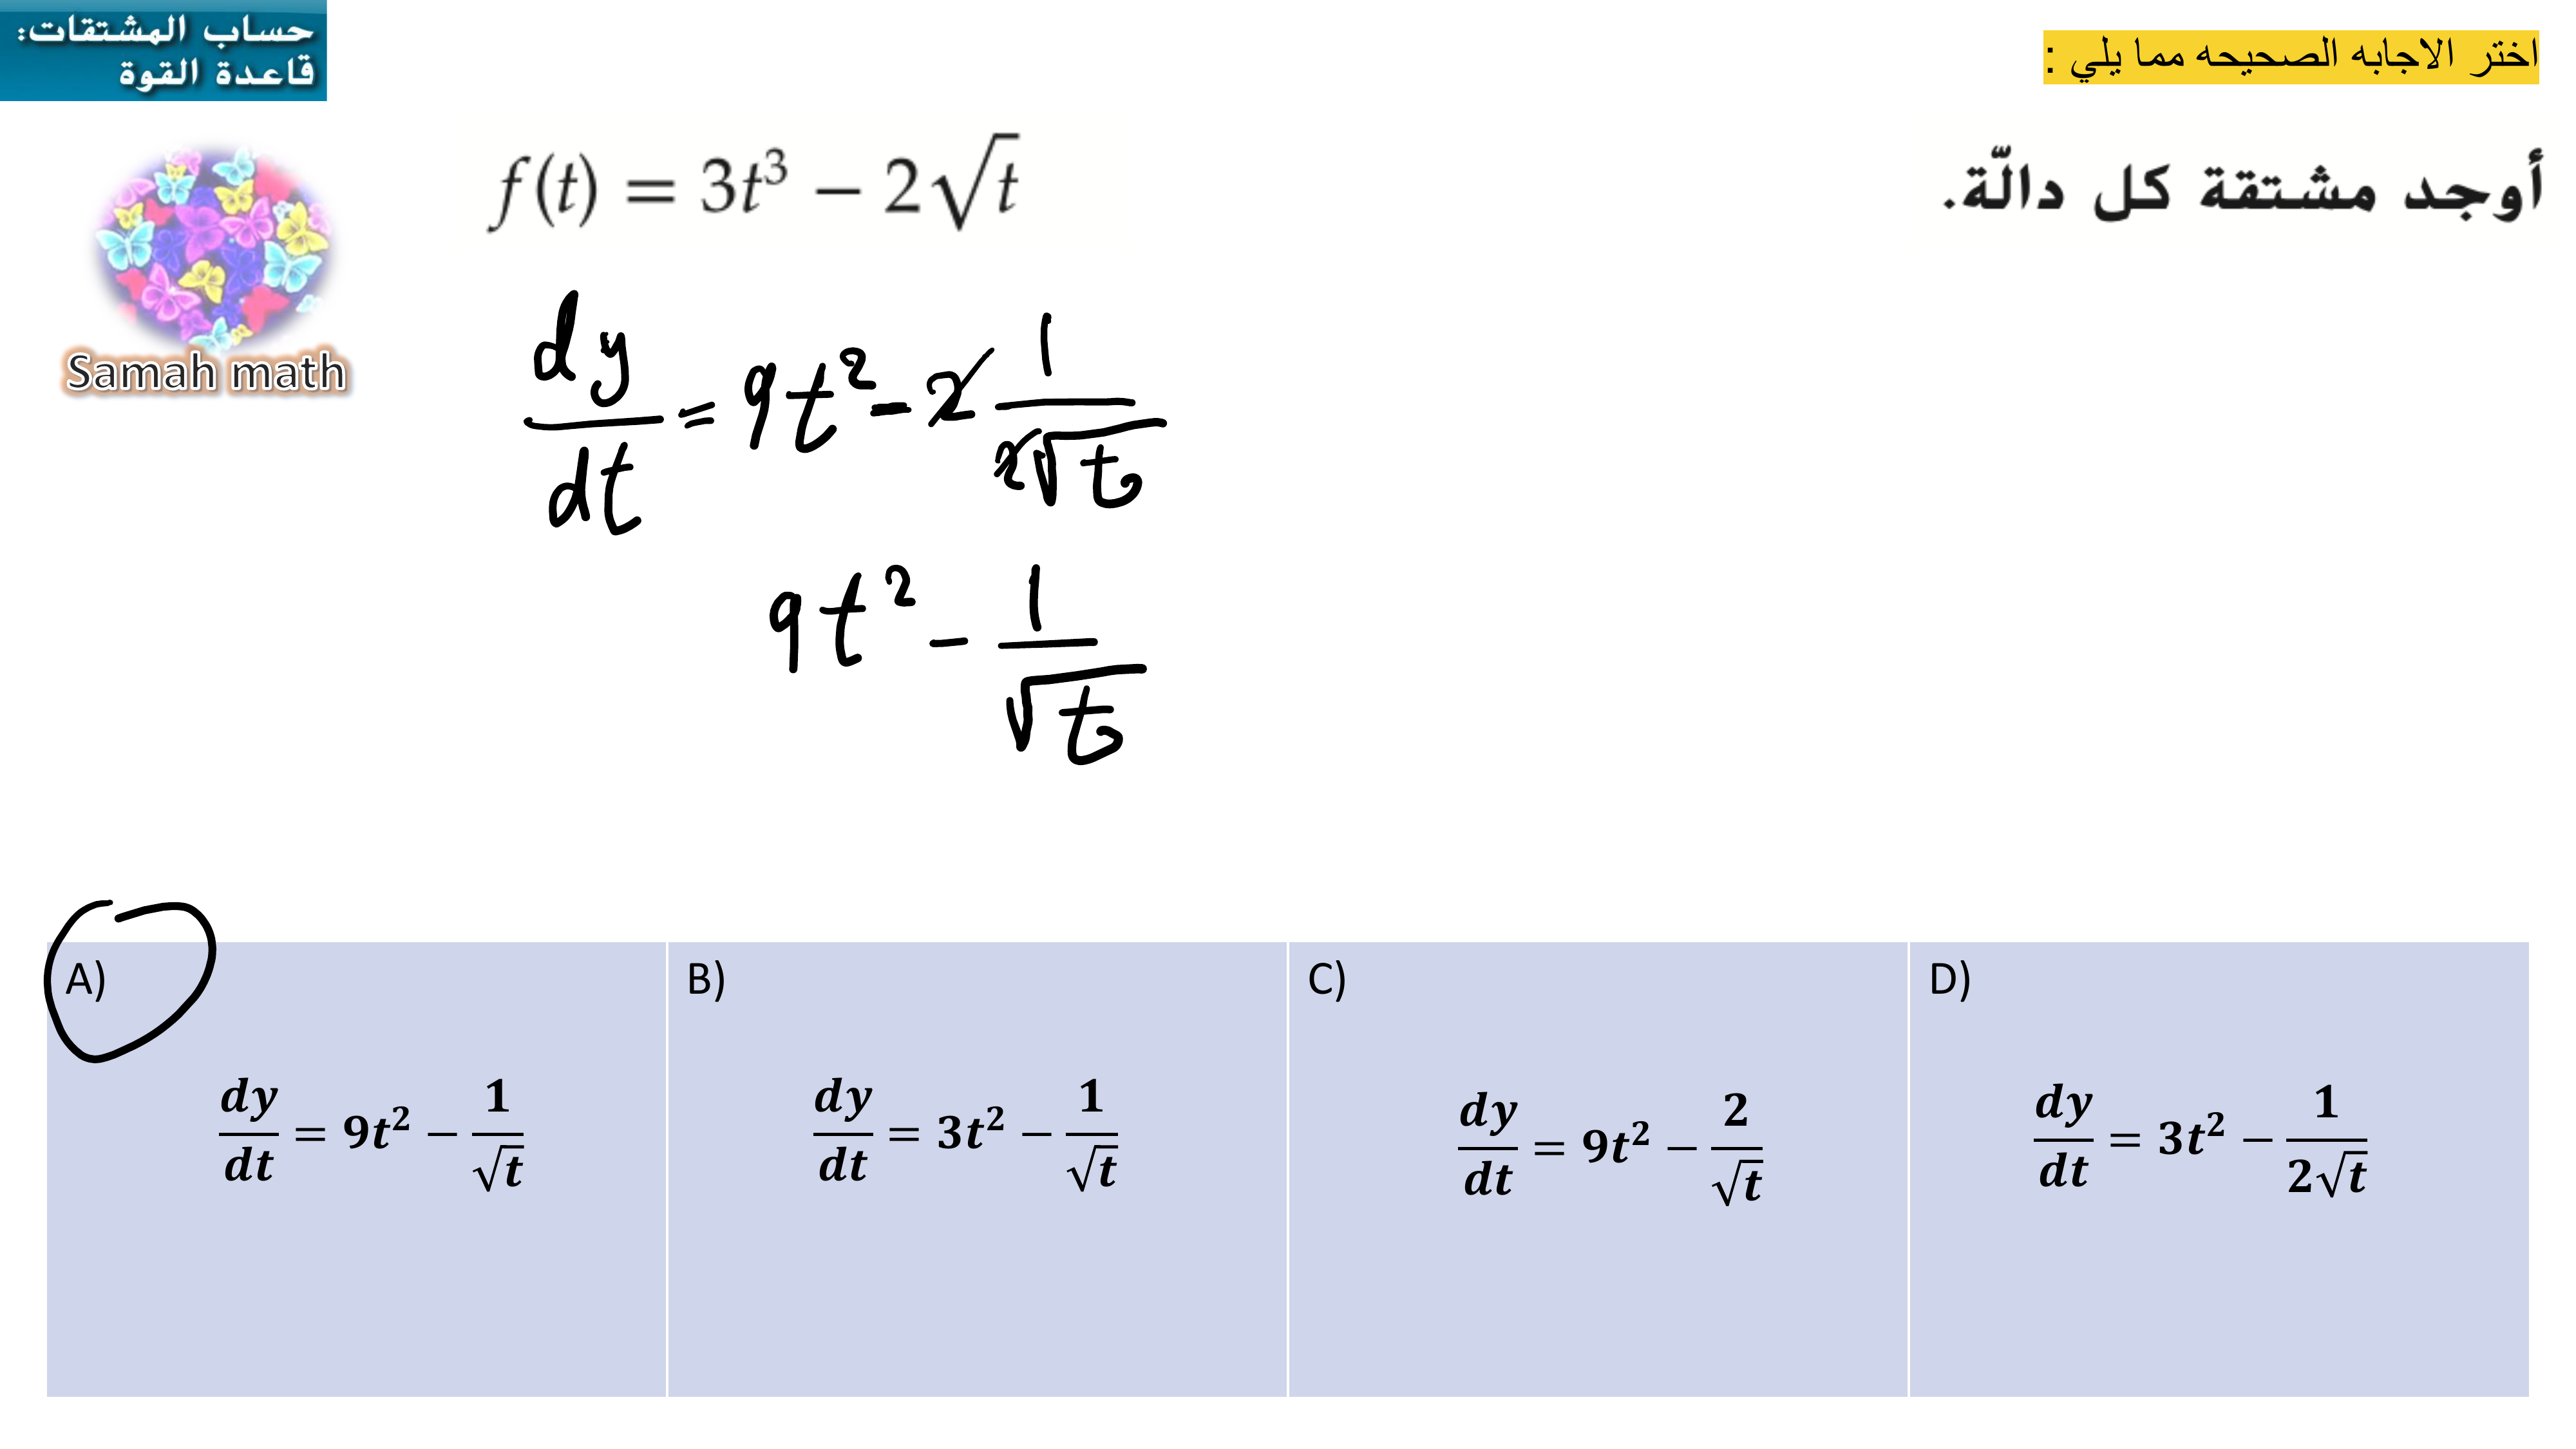 حساب المشتقات:
قاعدة القوة
اختر الاجابه الصحيحه مما يلي :
أوجد مشتقة كل دالّة.
f(t) = 3t³ − 2√t
Samah math
dy/dt = 9t² - 2 1/(2√t)
9t² - 1/√t
A)
dy/dt = 9t² − 1/√t
B)
dy/dt = 3t² − 1/√t
C)
dy/dt = 9t² − 2/√t
D)
dy/dt = 3t² − 1/(2√t)